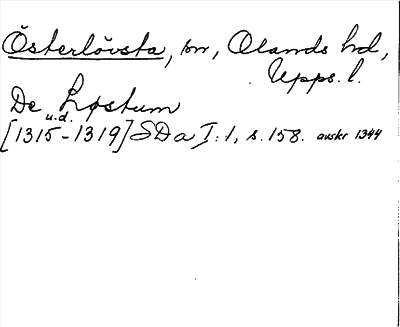 Österlövsta, sn, Olands hd,
Upps. l.
De Løstum
u.d.
[1315-1319] SDa I:1, s. 158. avskr 1344